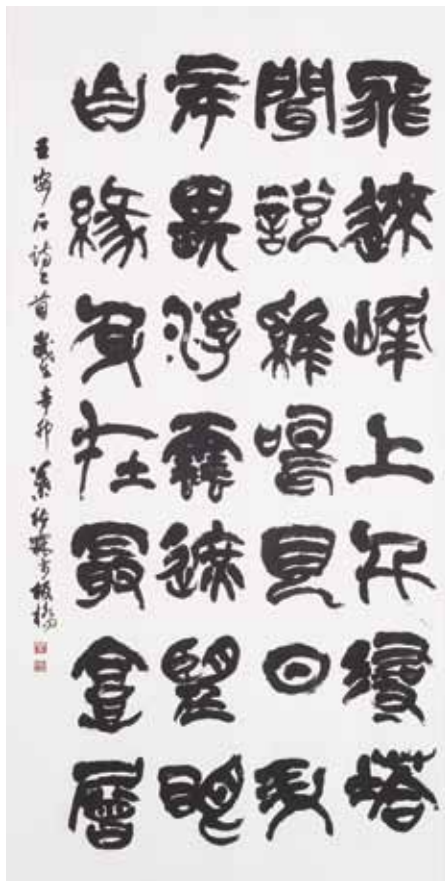 飛來峰上千尋塔
聞說雞鳴見日升
不畏浮雲遮望眼
自緣身在最高層
王安石詩之首 歲在辛卯 板橋